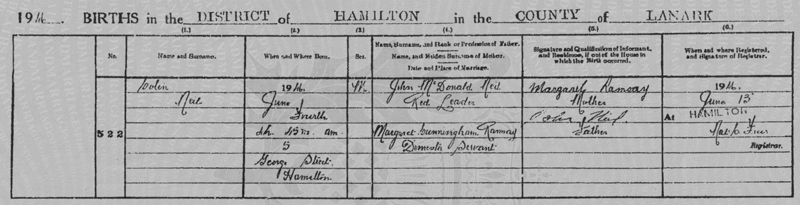 1914. BIRTHS in the DISTRICT of HAMILTON in the COUNTY of LANARK
(1.) (2.) (3.) (4.) (5.) (6.)
No. Name and Surname. When and Where Born. Sex. Name, Surname, and Rank or Profession of Father. Name, and Maiden Surname of Mother. Date and Place of Marriage. Signature and Qualification of Informant, and Residence, if out of the House in which the Birth occurred. When and where Registered, and Signature of Registrar.
Colin 1914. M. John McDonald Neil Margaret Ramsay 1914.
Neil June Red Leader Mother June 15
Fourth Neil At HAMILTON
522 4h. 45m. am. Margaret Cunningham Ramsay Father
5 Domestic Servant Registrar.
George Street
Hamilton.